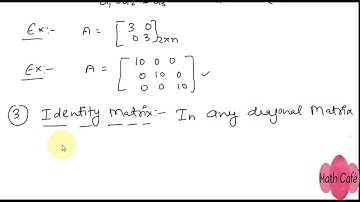 Ex:- A = [3 0
0 3]2×n
Ex:- A = [10 0 0
0 10 0
0 0 10] ✓
③ Identity Matrix:- In any diagonal Matrix
Math Café